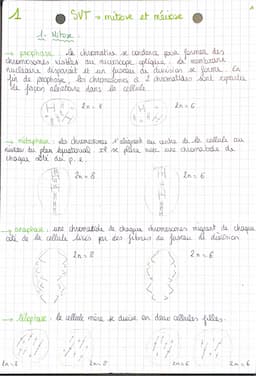 1
SVT → mitose et méiose
1. Mitose
→ prophase : la chromatine se condense pour former des
chromosomes visibles au microscope optique. La membrane
nucléaire disparaît et un fuseau de division se forme. En
fin de prophase, les chromosomes à 2 chromatides sont répartis
de façon aléatoire dans la cellule.
2n = 8 2n = 6
→ métaphase : les chromosomes s'alignent au centre de la cellule au
niveau du plan équatorial et se place avec une chromatide de
chaque côté du p. e.
2n = 8 2n = 6
→ anaphase : une chromatide de chaque chromosomes migrent de chaque
côté de la cellule tirés par des fibres du fuseau de division
2n = 8 2n = 6
→ télophase : la cellule mère se divise en deux cellules filles.
2n = 8 2n = 8 2n = 6 2n = 6